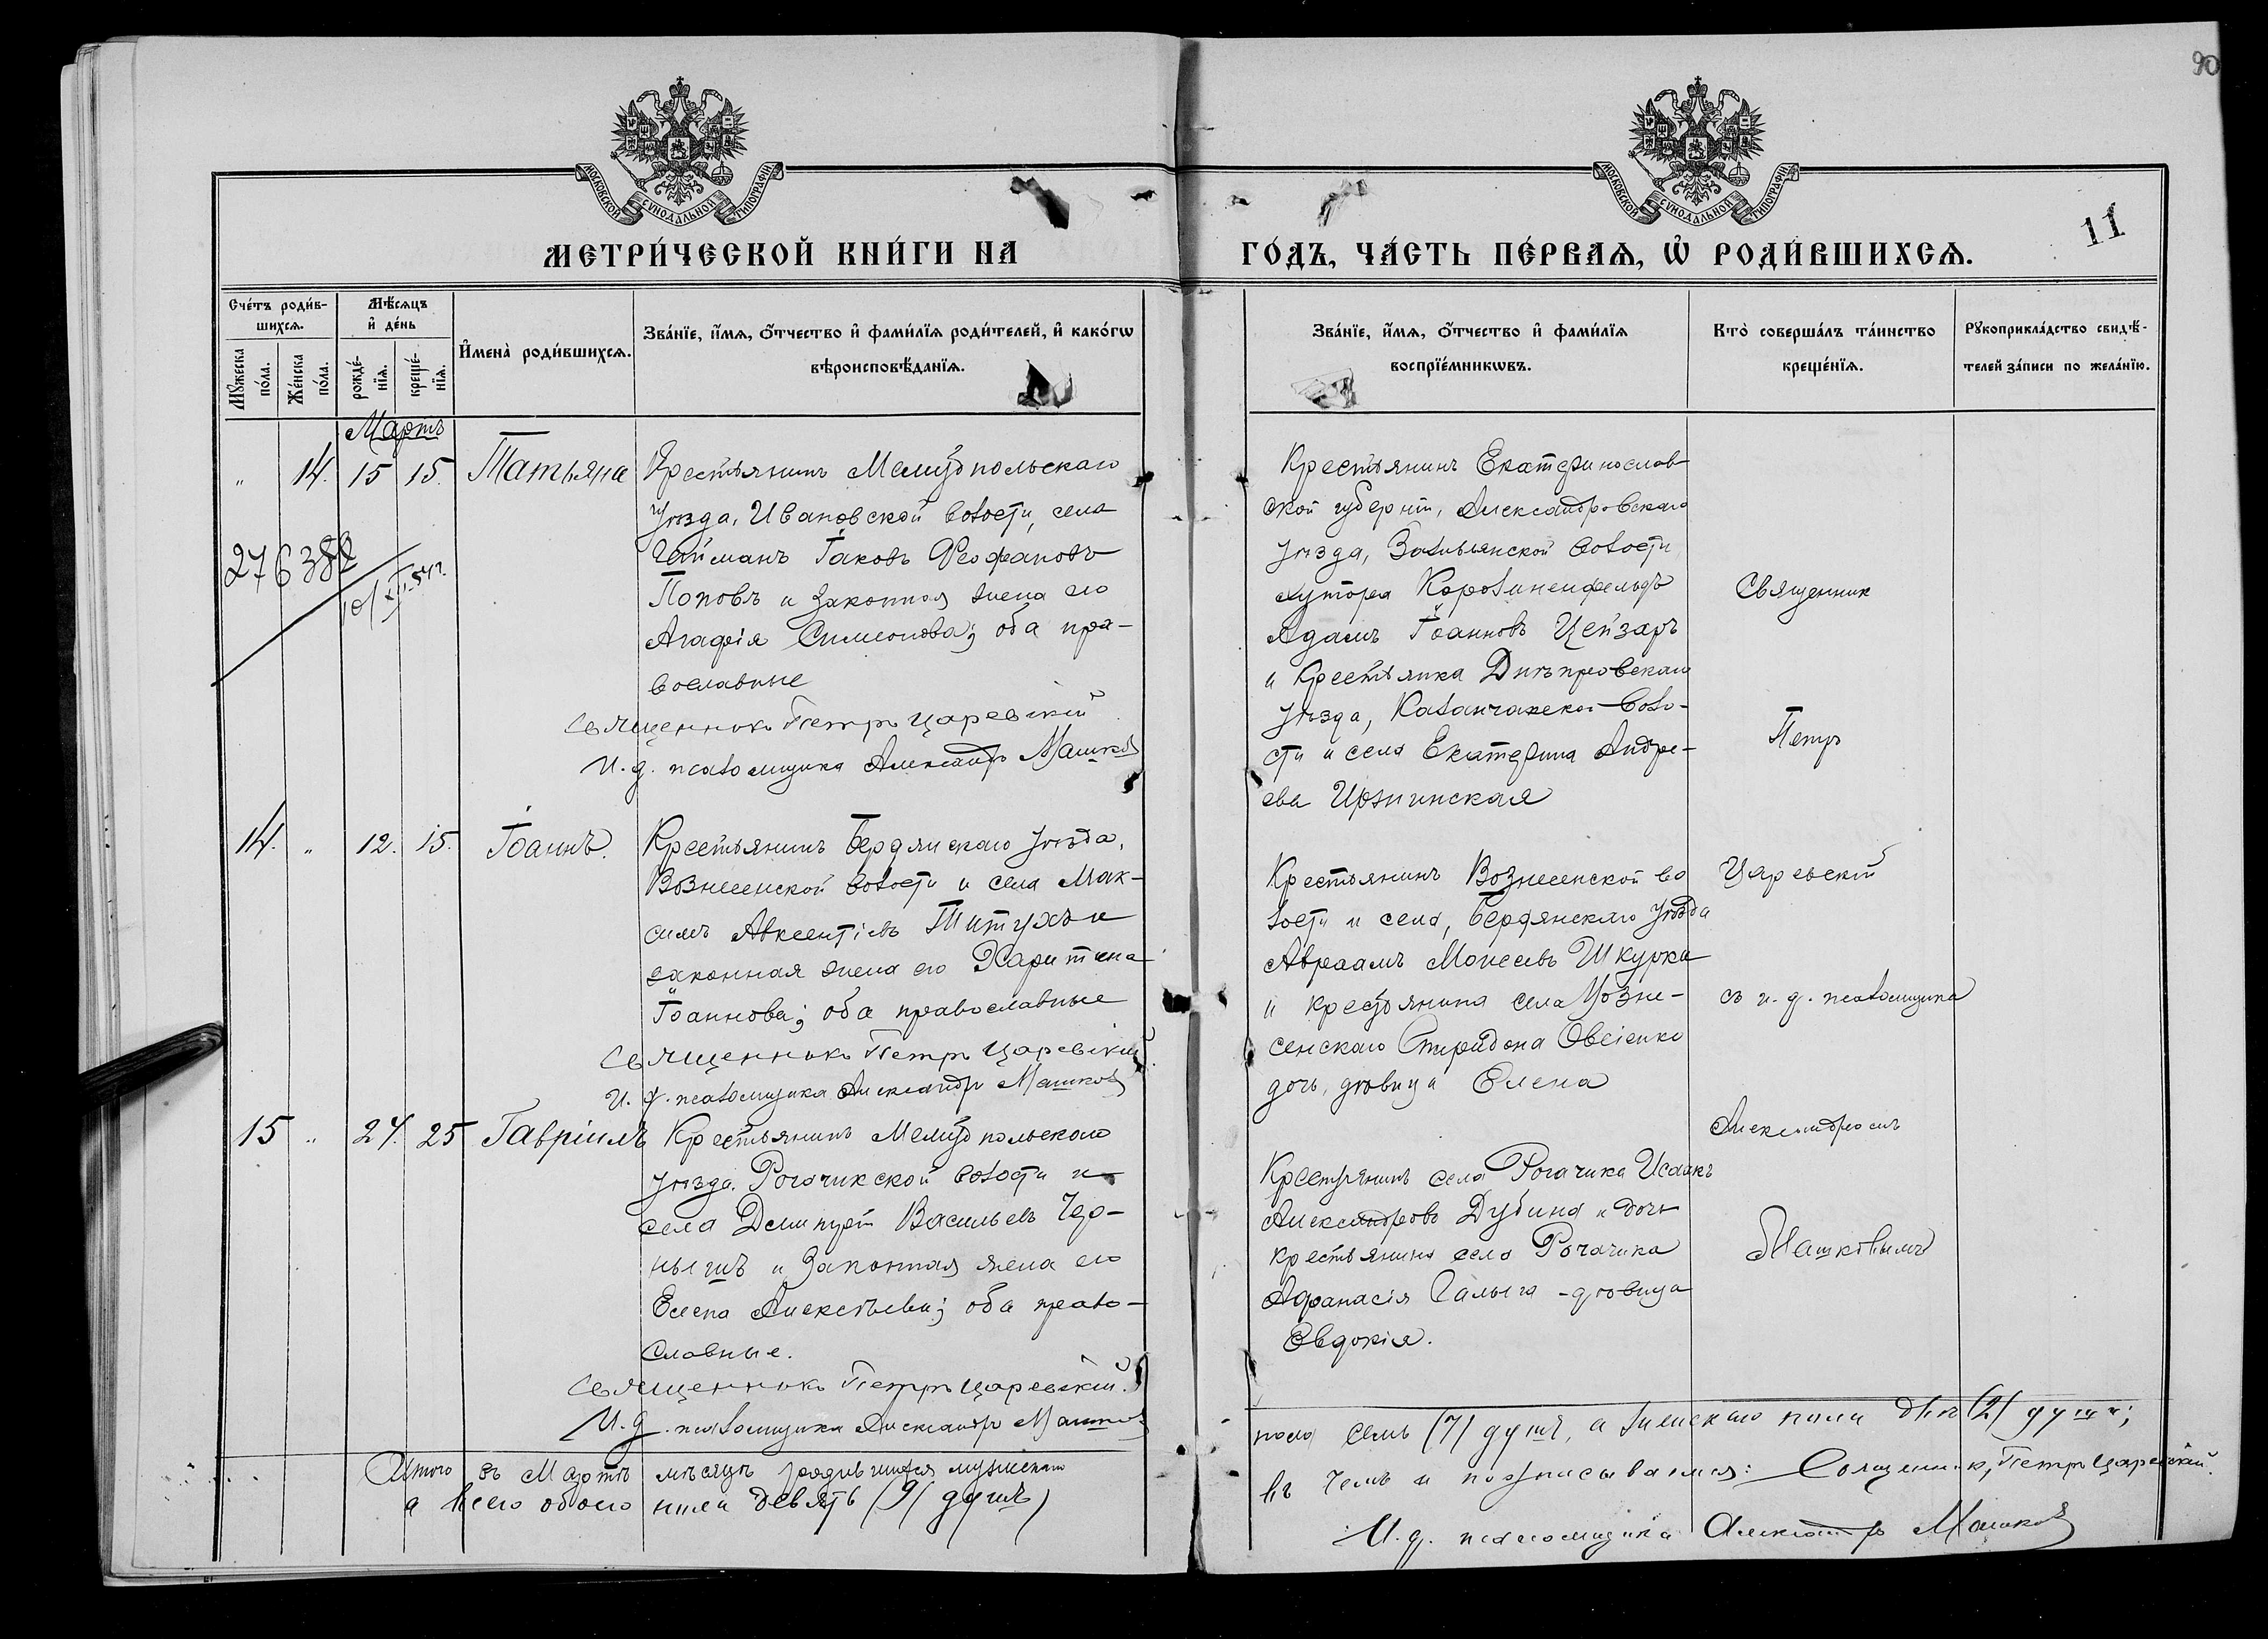 90
11
МОСКОВСКОЙ СУНОДАЛЬНОЙ ТИПОГРАФІИ
МОСКОВСКОЙ СУНОДАЛЬНОЙ ТИПОГРАФІИ
МЕТРИ́ЧЕСКОЙ КНИ́ГИ НА
ГО́ДЪ, ЧА́СТЬ ПЕ́РВАѦ, Ѡ РОДИ́ВШИХСѦ.
Сче́тъ роди́в-
шихсѧ.
Мꙋжеска по́ла.
Же́нска по́ла.
Мѣ́сѧцъ
и҆ де́нь
рожде́-
нїѧ.
креще́-
нїѧ.
И҆мена̀ роди́вшихсѧ.
Зва́нїе, и҆́мѧ, ѻ҆́тчество и҆ фами́лїѧ роди́телей, и҆ како́гѡ
вѣроисповѣ́данїѧ.
Зва́нїе, и҆́мѧ, ѻ҆́тчество и҆ фами́лїѧ
воспрїе́мникѡвъ.
Кто̀ соверша́лъ та́инство
креще́нїѧ.
Рꙋкоприкла́дство свидѣ́-
телей за́писи по жела́нїю.
Мартъ
" 14. 15 15. Татьяна
Крестьянинъ Мелитопольскаго
уѣзда, Ивановской волости, села
Гайманъ Іаковъ Феофановъ
Поповъ и законная жена его
Агафія Симеонова; оба пра-
вославные
Священникъ Петръ Царевскій
И. д. псаломщика Александръ Машковъ
276382
10/XII 54 г.
Крестьянинъ Екатеринослав-
ской губерніи, Александровскаго
уѣзда, волости
хутора
Адамъ Іоанновъ Цейзаръ
и крестьянка Днѣпровскаго
уѣзда, Каланчакской воло-
сти и села Екатерина Андре-
ева
Священникъ
Петръ
Царевскій
съ и. д. псаломщика
Александромъ
Машковымъ
14. " 12. 15. Іоаннъ.
Крестьянинъ Бердянскаго уѣзда,
Вознесенской волости и села Мак-
симъ Авксентіевъ Титухъ и
законная жена его Харитина
Іоаннова; оба православные
Священникъ Петръ Царевскій
И. д. псаломщика Александръ Машковъ
Крестьянинъ Вознесенской во
лости и села, Бердянскаго уѣзда
Авраамъ Моисеевъ Шкурка
и крестьянина села Возне-
сенскаго Спиридона Овсіенко
дочь, дѣвица Елена
15 " 24. 25 Гавріилъ
Крестьянинъ Мелитопольскаго
уѣзда, Рогачикской волости и
села Димитрій Васильевъ Чер-
нышъ и законная жена его
Елена Алексѣева; оба право-
славные.
Священникъ Петръ Царевскій.
И. д. псаломщика Александръ Машковъ
Крестьянинъ села Рогачика Исаакъ
Александровъ Дубина и дочь
крестьянина села Рогачика
Афанасія Галыга - дѣвица
Евдокія.
Итого въ Мартѣ мѣсяцѣ родившихся мужескаго
пола семь (7) душъ, а женскаго пола двѣ (2) души;
а всего обоего пола девять (9) душъ,
въ чемъ и подписываемся: Священникъ, Петръ Царевскій.
И. д. псаломщика Александръ Машковъ